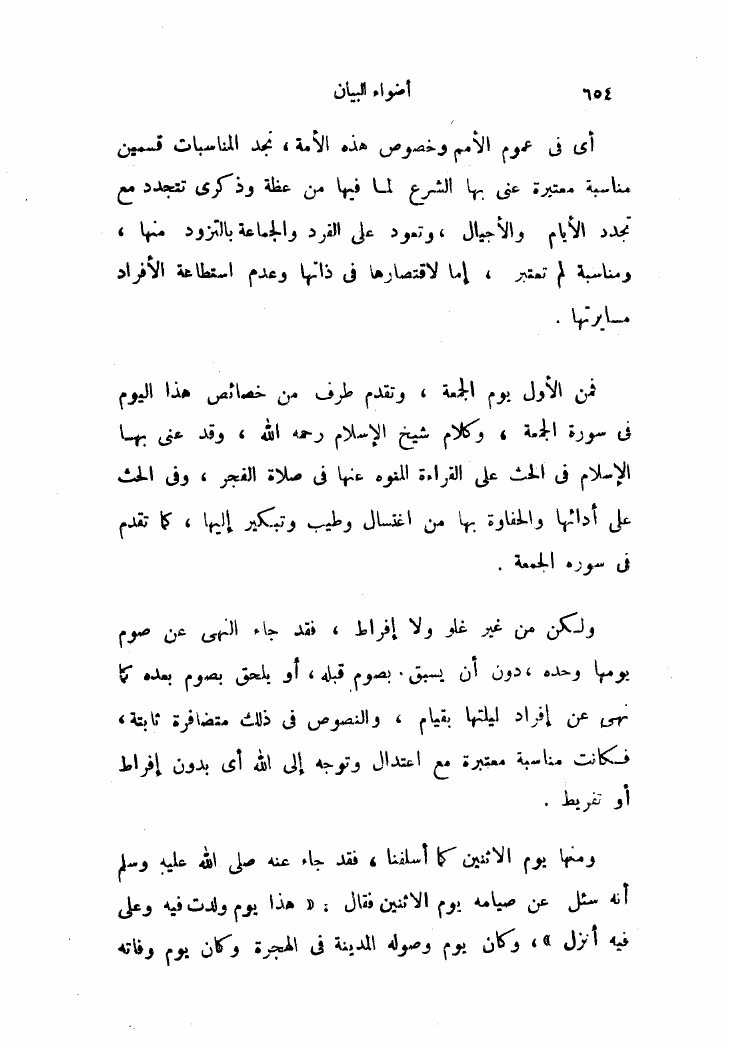 ٦٥٤ أضواء البيان
أى فى عموم الأمم وخصوص هذه الأمة ، نجد المناسبات قسمين
مناسبة معتبرة عنى بها الشرع لما فيها من عظة وذكرى تتجدد مع
تجدد الأيام والأجيال ، وتعود على الفرد والجماعة بالتزود منها ،
ومناسبة لم تعتبر ، إما لاقتصارها فى ذاتها وعدم استطاعة الأفراد
مسايرتها .
فمن الأول يوم الجمعة ، وتقدم طرف من خصائص هذا اليوم
فى سورة الجمعة ، وكلام شيخ الإسلام رحمه الله ، وقد عنى بها
الإسلام فى الحث على القراءة المنوه عنها فى صلاة الفجر ، وفى الحث
على أدائها والحفاوة بها من اغتسال وطيب وتبكير إليها ، كما تقدم
فى سوره الجمعة .
ولكن من غير غلو ولا إفراط ، فقد جاء النهى عن صوم
يومها وحده ، دون أن يسبق بصوم قبله ، أو يلحق بصوم بعده كما
نهى عن إفراد ليلتها بقيام ، والنصوص فى ذلك متضافرة ثابتة ،
فكانت مناسبة معتبرة مع اعتدال وتوجه إلى الله أى بدون إفراط
أو تفريط .
ومنها يوم الاثنين كما أسلفنا ، فقد جاء عنه صلى الله عليه وسلم
أنه سئل عن صيامه يوم الاثنين فقال : « هذا يوم ولدت فيه وعلى
فيه أنزل » ، وكان يوم وصوله المدينة فى الهجرة وكان يوم وفاته